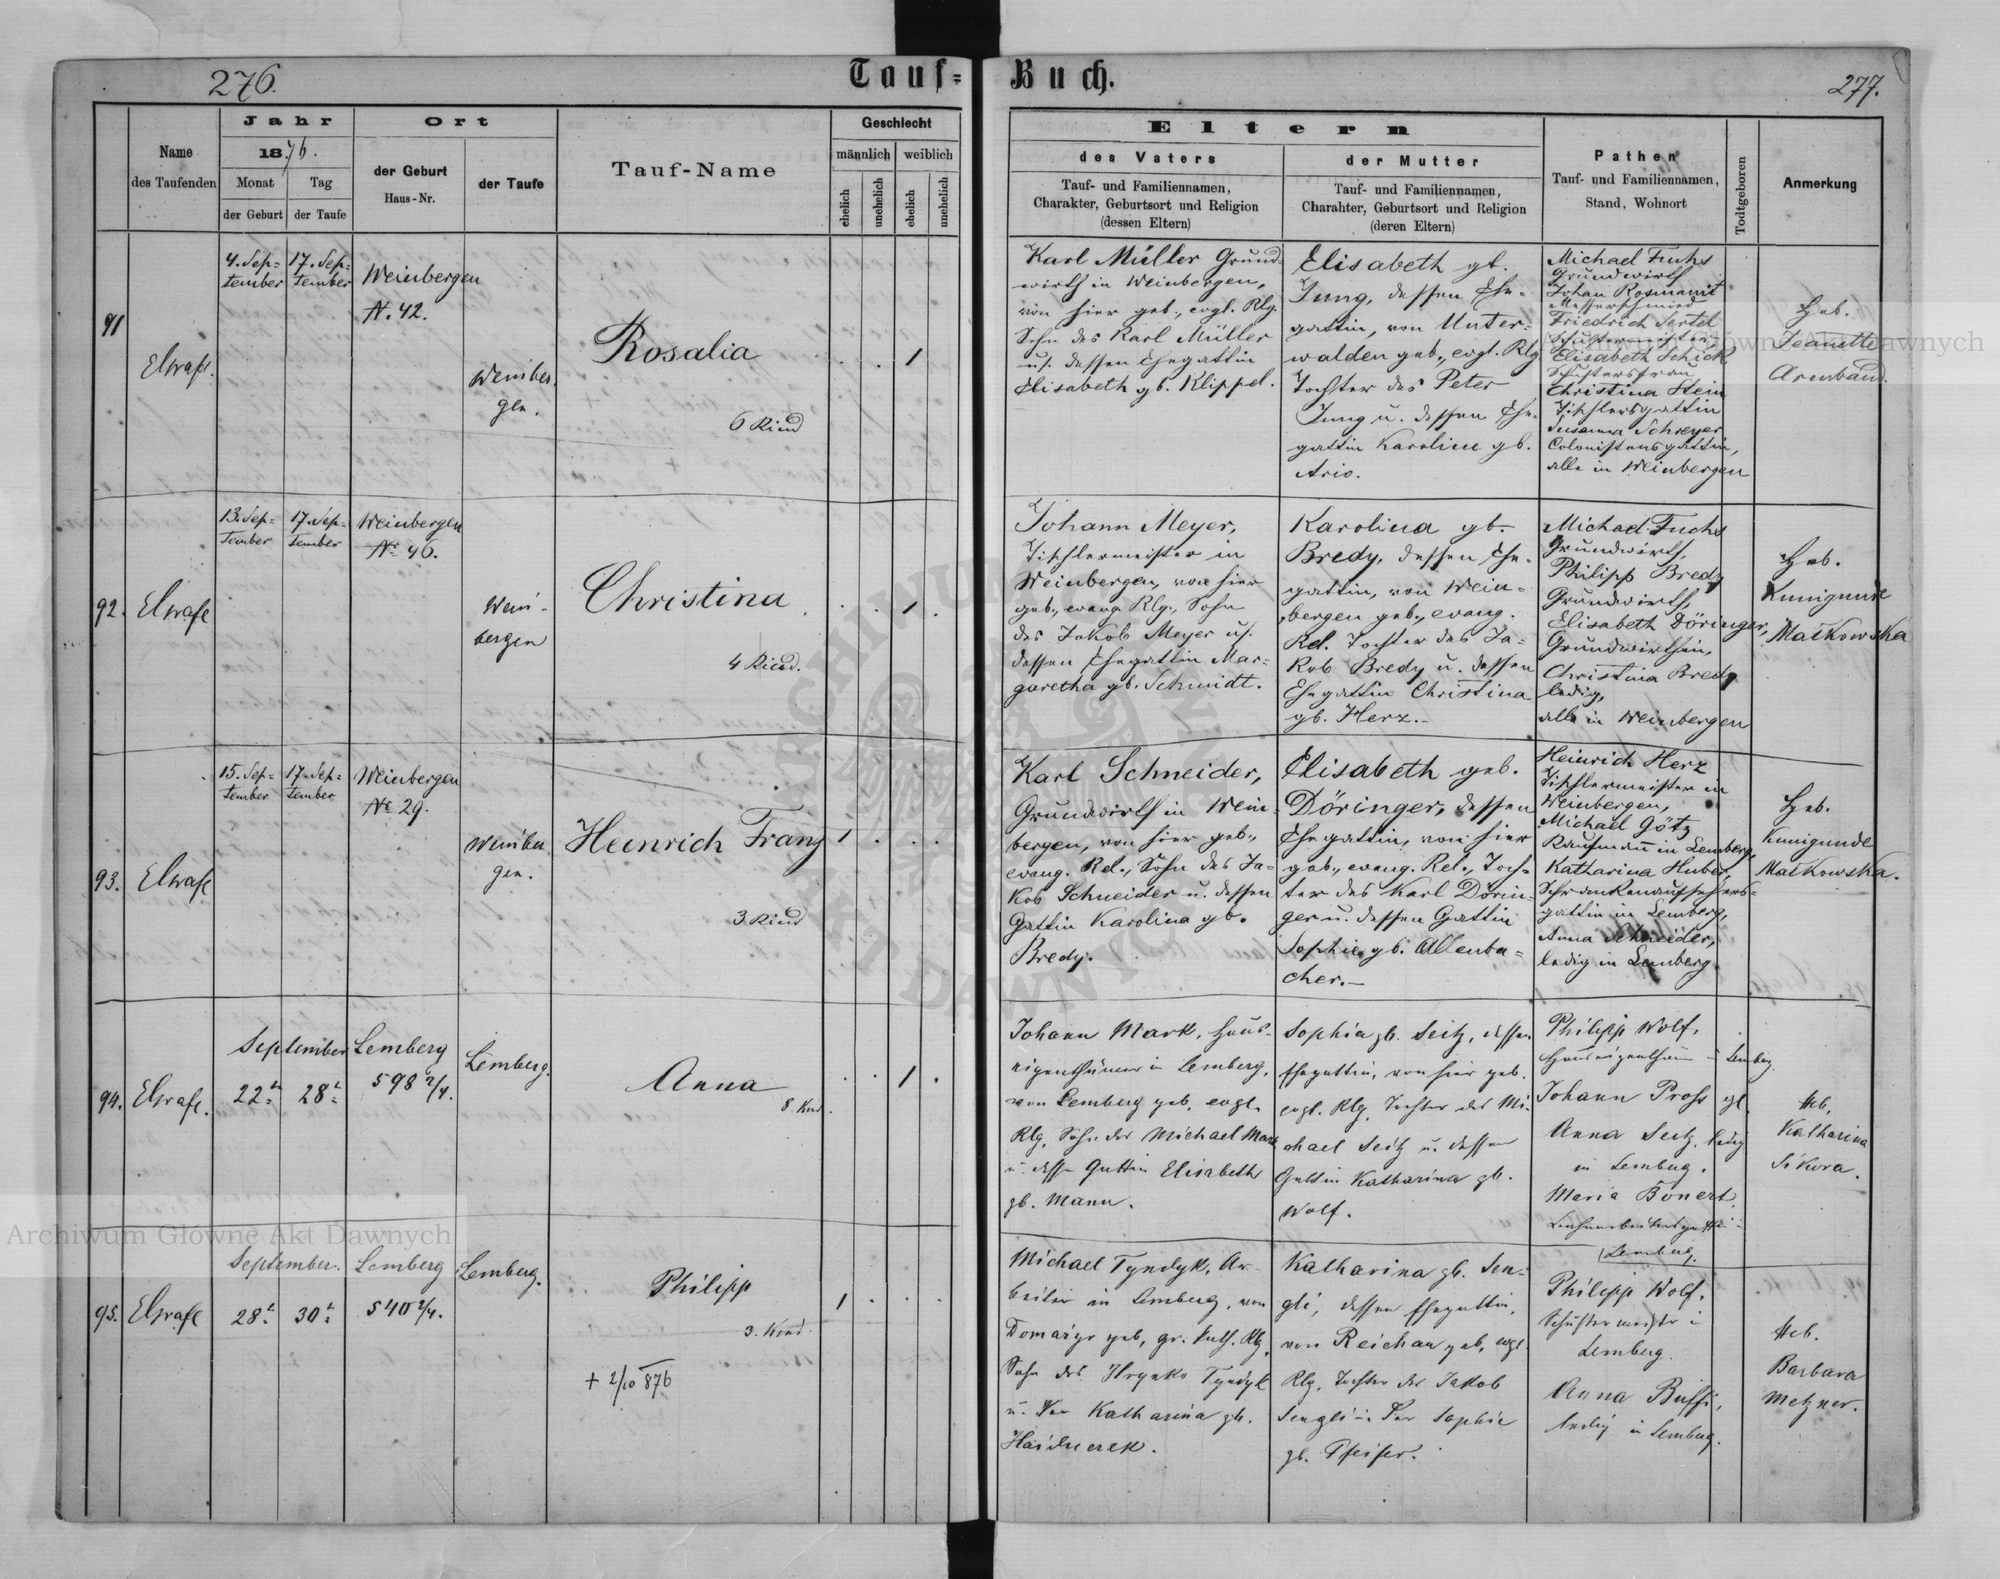 276.
Tauf=
Buch.
277.
Jahr
Ort
Geschlecht
Eltern
Name
des Taufenden
1876.
der Geburt
Haus-Nr.
der Taufe
Tauf-Name
männlich
weiblich
Monat
Tag
der Geburt
der Taufe
ehelich
unehelich
ehelich
unehelich
des Vaters
Tauf- und Familiennamen,
Charakter, Geburtsort und Religion
(dessen Eltern)
der Mutter
Tauf- und Familiennamen,
Charahter, Geburtsort und Religion
(deren Eltern)
Pathen
Tauf- und Familiennamen,
Stand, Wohnort
Todtgeboren
Anmerkung
91
4. Sep=
tember
17. Sep=
tember
Weinbergen
N. 42.
Weinber
gen.
Rosalia
6 Kind
1
Karl Müller Grund=
wirth in Weinbergen,
von hier geb., evgl. Rlg.
Sohn des Karl Müller
u. dessen Ehegattin
Elisabeth gb. Klippel.
Elisabeth gb.
Jung, dessen Ehe-
gattin, von Unter-
walden geb., evgl. Rlg
Tochter des Peter
Jung u. dessen Ehe-
gattin Karoline gb.
Ario.
Michael Fuchs
Grundwirth
Johan Rosmanit
Messerschmied
Friedrich Sertel
Schustermeister
Elisabeth Schick
Schustersfrau
Christina Stein
Tischlersgattin
Susanna Schreyer
Colonistensgattin,
alle in Weinbergen
Heb.
Jeanette
Armband.
92.
13. Sep=
tember
17. Sep=
tember
Weinbergen
No 46.
Wein-
bergen
Christina
4 Kind.
1
Johann Meyer,
Tischlermeister in
Weinbergen, von hier
geb., evang. Rlg., Sohn
des Jakob Meyer u.
dessen Ehegattin Mar=
garetha gb. Schmidt.
Karolina gb.
Bredy, dessen Ehe-
gattin, von Wein=
bergen geb., evang.
Rel. Tochter des Ja=
kob Bredy u. dessen
Ehegattin Christina
gb. Herz.-
Michael Fuchs
Grundwirth,
Philipp Bredy
Grundwirth,
Elisabeth Döringer,
Grundwirthin,
Christina Bredy
ledig,
alle in Weinbergen
Heb.
Kunigunde
Malkowska
93.
15. Sep=
tember
17. Sep=
tember
Weinbergen
No 29.
Weinber
gen.
Heinrich Franz
3. Kind
1
Karl Schneider,
Grundwirth in Wein-
bergen, von hier geb.,
evang. Rel., Sohn des Ja=
kob Schneider u. dessen
Gattin Karolina gb.
Bredy.
Elisabeth geb.
Döringer, dessen
Ehegattin, von hier
geb., evang. Rel., Toch=
ter des Karl Dörin-
ger u. dessen Gattin
Sophie gb. Allenba=
cher.-
Heinrich Herz
Tischlermeister in
Weinbergen,
Michael Götz
Kaufmañ in Lemberg,
Katharina Huber,
Schrankenaufsehers=
gattin in Lemberg,
Anna Schneider,
ledig in Lemberg.
Heb.
Kunigunde
Malkowska.
94.
September
22
28
Lemberg
598 2/4.
Lemberg.
Anna
8. Kind.
1
Johann Mark, Haus-
eigenthümer in Lemberg,
von Lemberg geb, evgl.
Rlg, Sohn des Michael Mark
Gattin Elisabeth
gb. Mann.
Sophia gb. Seitz, dessen
Ehegattin, von hier geb.
evgl. Rlg, Tochter des Mi-
chael Seitz u. dessen
Gattin Katharina gb.
Wolf.
Philipp Wolf,
Lemberg.
Johann Pross
Anna Seitz, ledig
in Lemberg.
Maria Bonert,
Lemberg.
Heb.
Katharina
Sikora.
95.
September.
28
30
Lemberg
540 2/4.
Lemberg.
Philipp
3. Kind.
+ 2/10 876
1
Michael Tyndyk, Ar-
beiter in Lemberg, von
geb, gr. kath. Rlg,
Sohn des Hrynko Tyndyk
u. der Katharina gb.
Katharina gb. Sen-
gli, dessen Ehegattin,
von Reichau geb, evgl
Rlg, Tochter des Jakob
Sengli u. der Sophie
gb. Pfeifer.
Philipp Wolf,
Schustermeister in
Lemberg.
Anna
ledig in Lemberg.
Heb.
Barbara
Metzner.
Archiwum Główne Akt Dawnych
Archiwum Główne Akt Dawnych